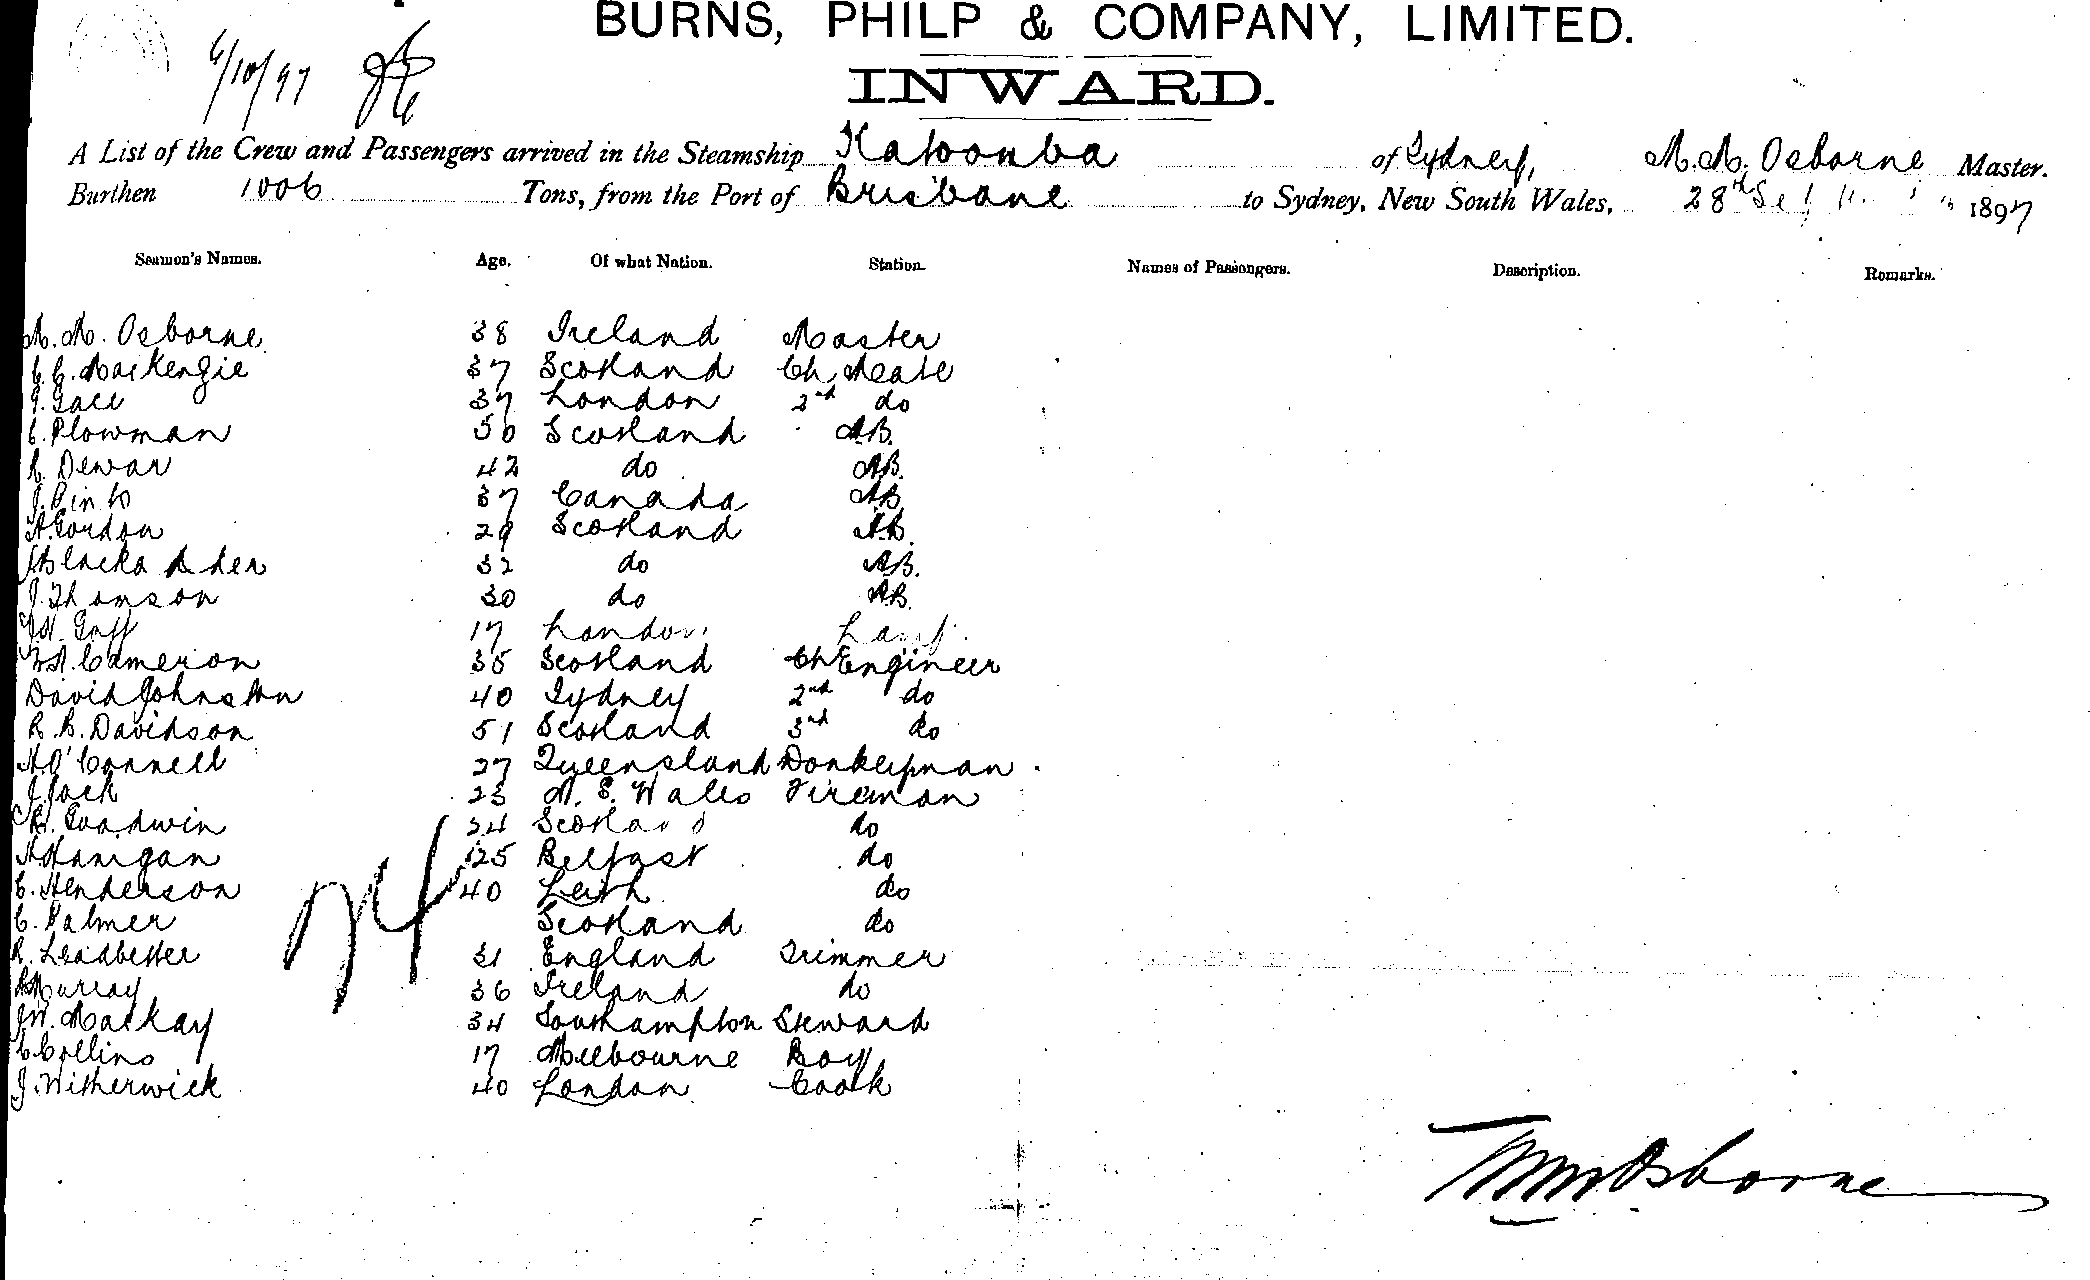 BURNS, PHILP & COMPANY, LIMITED.
6/10/97
INWARD.
A List of the Crew and Passengers arrived in the Steamship Katoomba of Sydney, M. M. Osborne Master.
Burthen 1006 Tons, from the Port of Brisbane to Sydney, New South Wales, 28th 1897
Seamen's Names. Age. Of what Nation. Station. Names of Passengers. Description. Remarks.
M. M. Osborne 38 Ireland Master
C. C. MacKenzie 37 Scotland Ch. Mate
37 London 2nd do
C. Plowman 50 Scotland AB.
R. Dewar 42 do AB.
J. Pinto 37 Canada AB
A. Gordon 29 Scotland AB.
32 do AB.
J. Thomson 30 do AB.
17 London
Cameron 35 Scotland Ch Engineer
David Johnston 40 Sydney 2nd do
R. B. Davidson 51 Scotland 3rd do
O'Connell 27 Queensland Donkeyman
J. Jack 23 N. S. Wales Fireman
Goodwin 24 Scotland do
Hanigan 25 Belfast do
C. Henderson 40 Leith do
C. Palmer Scotland do
R. Leadbetter 31 England Trimmer
Murray 36 Ireland do
Mackay 34 Southampton Steward
C Collins 17 Melbourne Boy
J. Witherwick 40 London Cook
24
MM Osborne